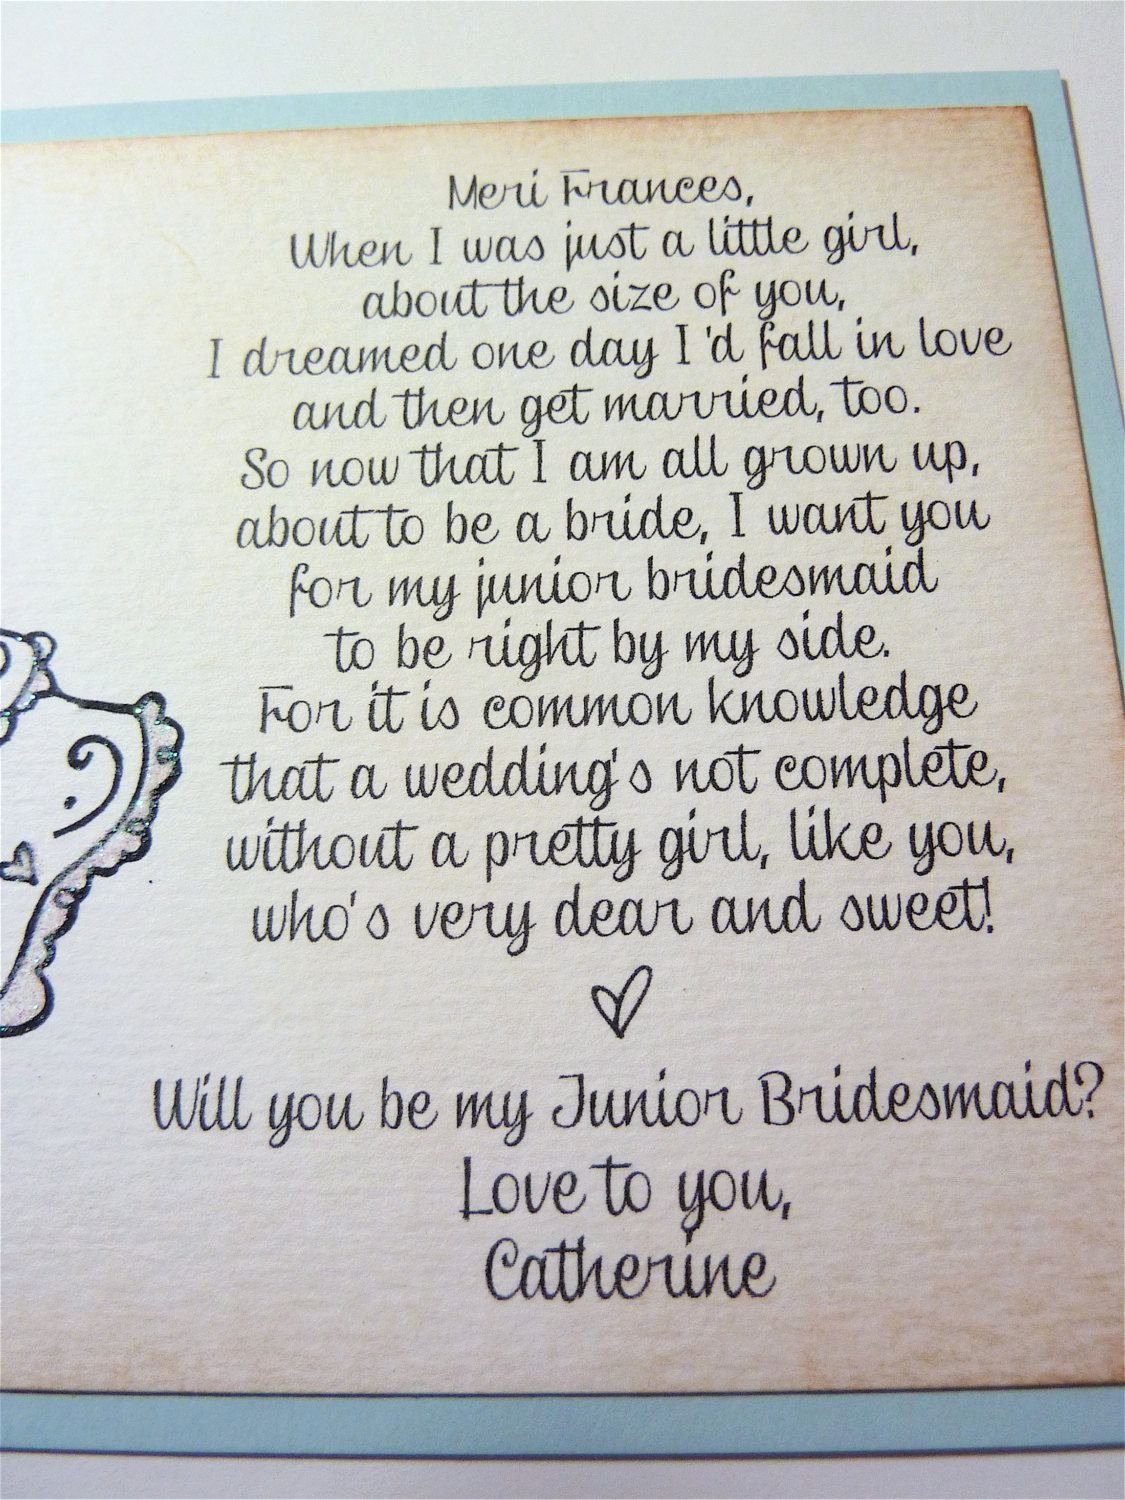 Meri Frances,
When I was just a little girl,
about the size of you,
I dreamed one day I'd fall in love
and then get married, too.
So now that I am all grown up,
about to be a bride, I want you
for my junior bridesmaid
to be right by my side.
For it is common knowledge
that a wedding's not complete,
without a pretty girl, like you,
who's very dear and sweet!
Will you be my Junior Bridesmaid?
Love to you,
Catherine